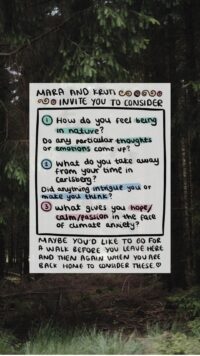 MARA AND KRUTI
INVITE YOU TO CONSIDER
1 How do you feel being
in nature?
Do any particular thoughts
or emotions come up?
2 What do you take away
from your time in
Carlsberg?
Did anything intrigue you or
make you think?
3 What gives you hope/
calm/passion in the face
of climate anxiety?
MAYBE YOU'D LIKE TO GO FOR
A WALK BEFORE YOU LEAVE HERE
AND THEN AGAIN WHEN YOU ARE
BACK HOME TO CONSIDER THESE ♡